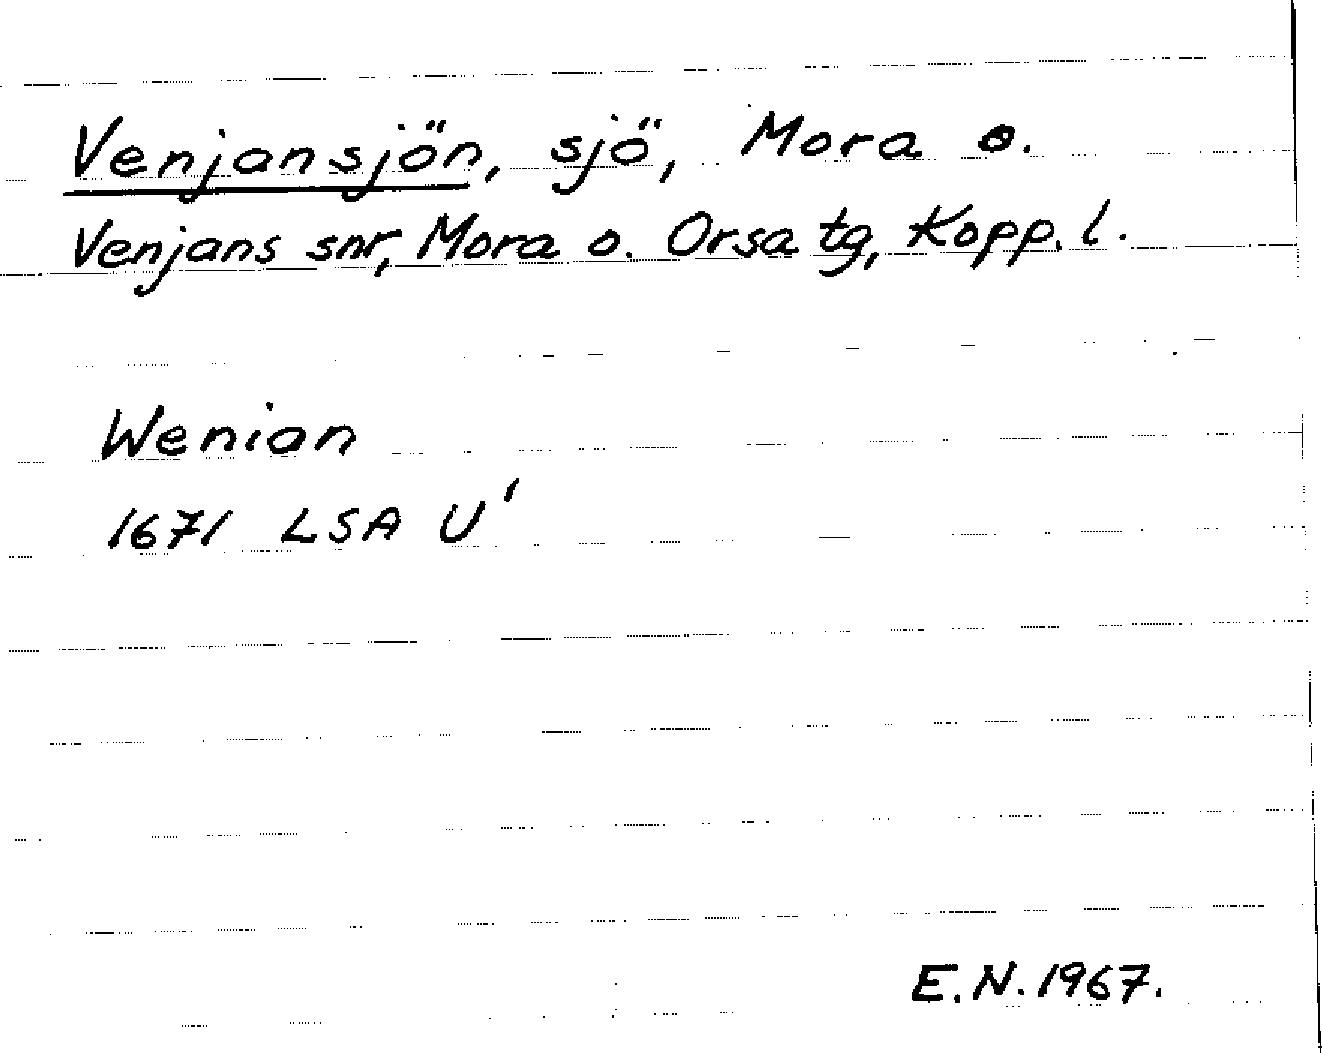 Venjansjön, sjö, Mora o.
Venjans snr, Mora o. Orsa tg, Kopp. l.
Wenian
1671 LSA U'
E.N. 1967.